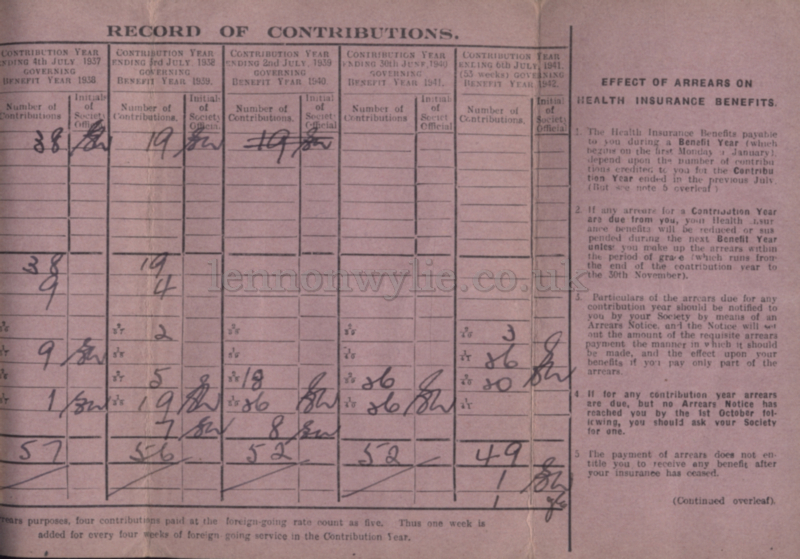 RECORD OF CONTRIBUTIONS.
CONTRIBUTION YEAR ENDING 4TH JULY 1937 GOVERNING BENEFIT YEAR 1938.
CONTRIBUTION YEAR ENDING 3RD JULY 1938 GOVERNING BENEFIT YEAR 1939.
CONTRIBUTION YEAR ENDING 2ND JULY 1939 GOVERNING BENEFIT YEAR 1940.
CONTRIBUTION YEAR ENDING 30TH JUNE 1940 GOVERNING BENEFIT YEAR 1941.
CONTRIBUTION YEAR ENDING 6TH JULY, 1941. (53 weeks) GOVERNING BENEFIT YEAR 1942.
Number of Contributions. Initials of Society Official
Number of Contributions. Initials of Society Official.
Number of Contributions. Initials of Society Official
Number of Contributions. Initials of Society Official
Number of Contributions. Initial of Society Official
38 19 19
38 19
9 4
2 3
9 26
5 18 26 20
1 19 26 26
7 8
57 56 52 52 49
1
1
years purposes, four contributions paid at the foreign-going rate count as five. Thus one week is
added for every four weeks of foreign going service in the Contribution Year.
EFFECT OF ARREARS ON
HEALTH INSURANCE BENEFITS.
1. The Health Insurance Benefits payable
to you during a Benefit Year (which
begins on the first Monday in January),
depend upon the number of contribu
tions credited to you for the Contribu
tion Year ended in the previous July
(But see note 5 overleaf)
2. If any arrears for a Contribution Year
are due from you, your Health Insur
ance benefits will be reduced or sus
pended during the next Benefit Year
unless you make up the arrears within
the period of grace (which runs from
the end of the contribution year to
the 30th November).
3. Particulars of the arrears due for any
contribution year should be notified to
you by your Society by means of an
Arrears Notice, and the Notice will set
out the amount of the requisite arrears
payment, the manner in which it should
be made, and the effect upon your
benefits if you pay only part of the
arrears.
4. If for any contribution year arrears
are due, but no Arrears Notice has
reached you by the 1st October fol-
lowing, you should ask your Society
for one.
5 The payment of arrears does not en-
title you to receive any benefit after
your insurance has ceased.
(Continued overleaf).
lennonwylie.co.uk